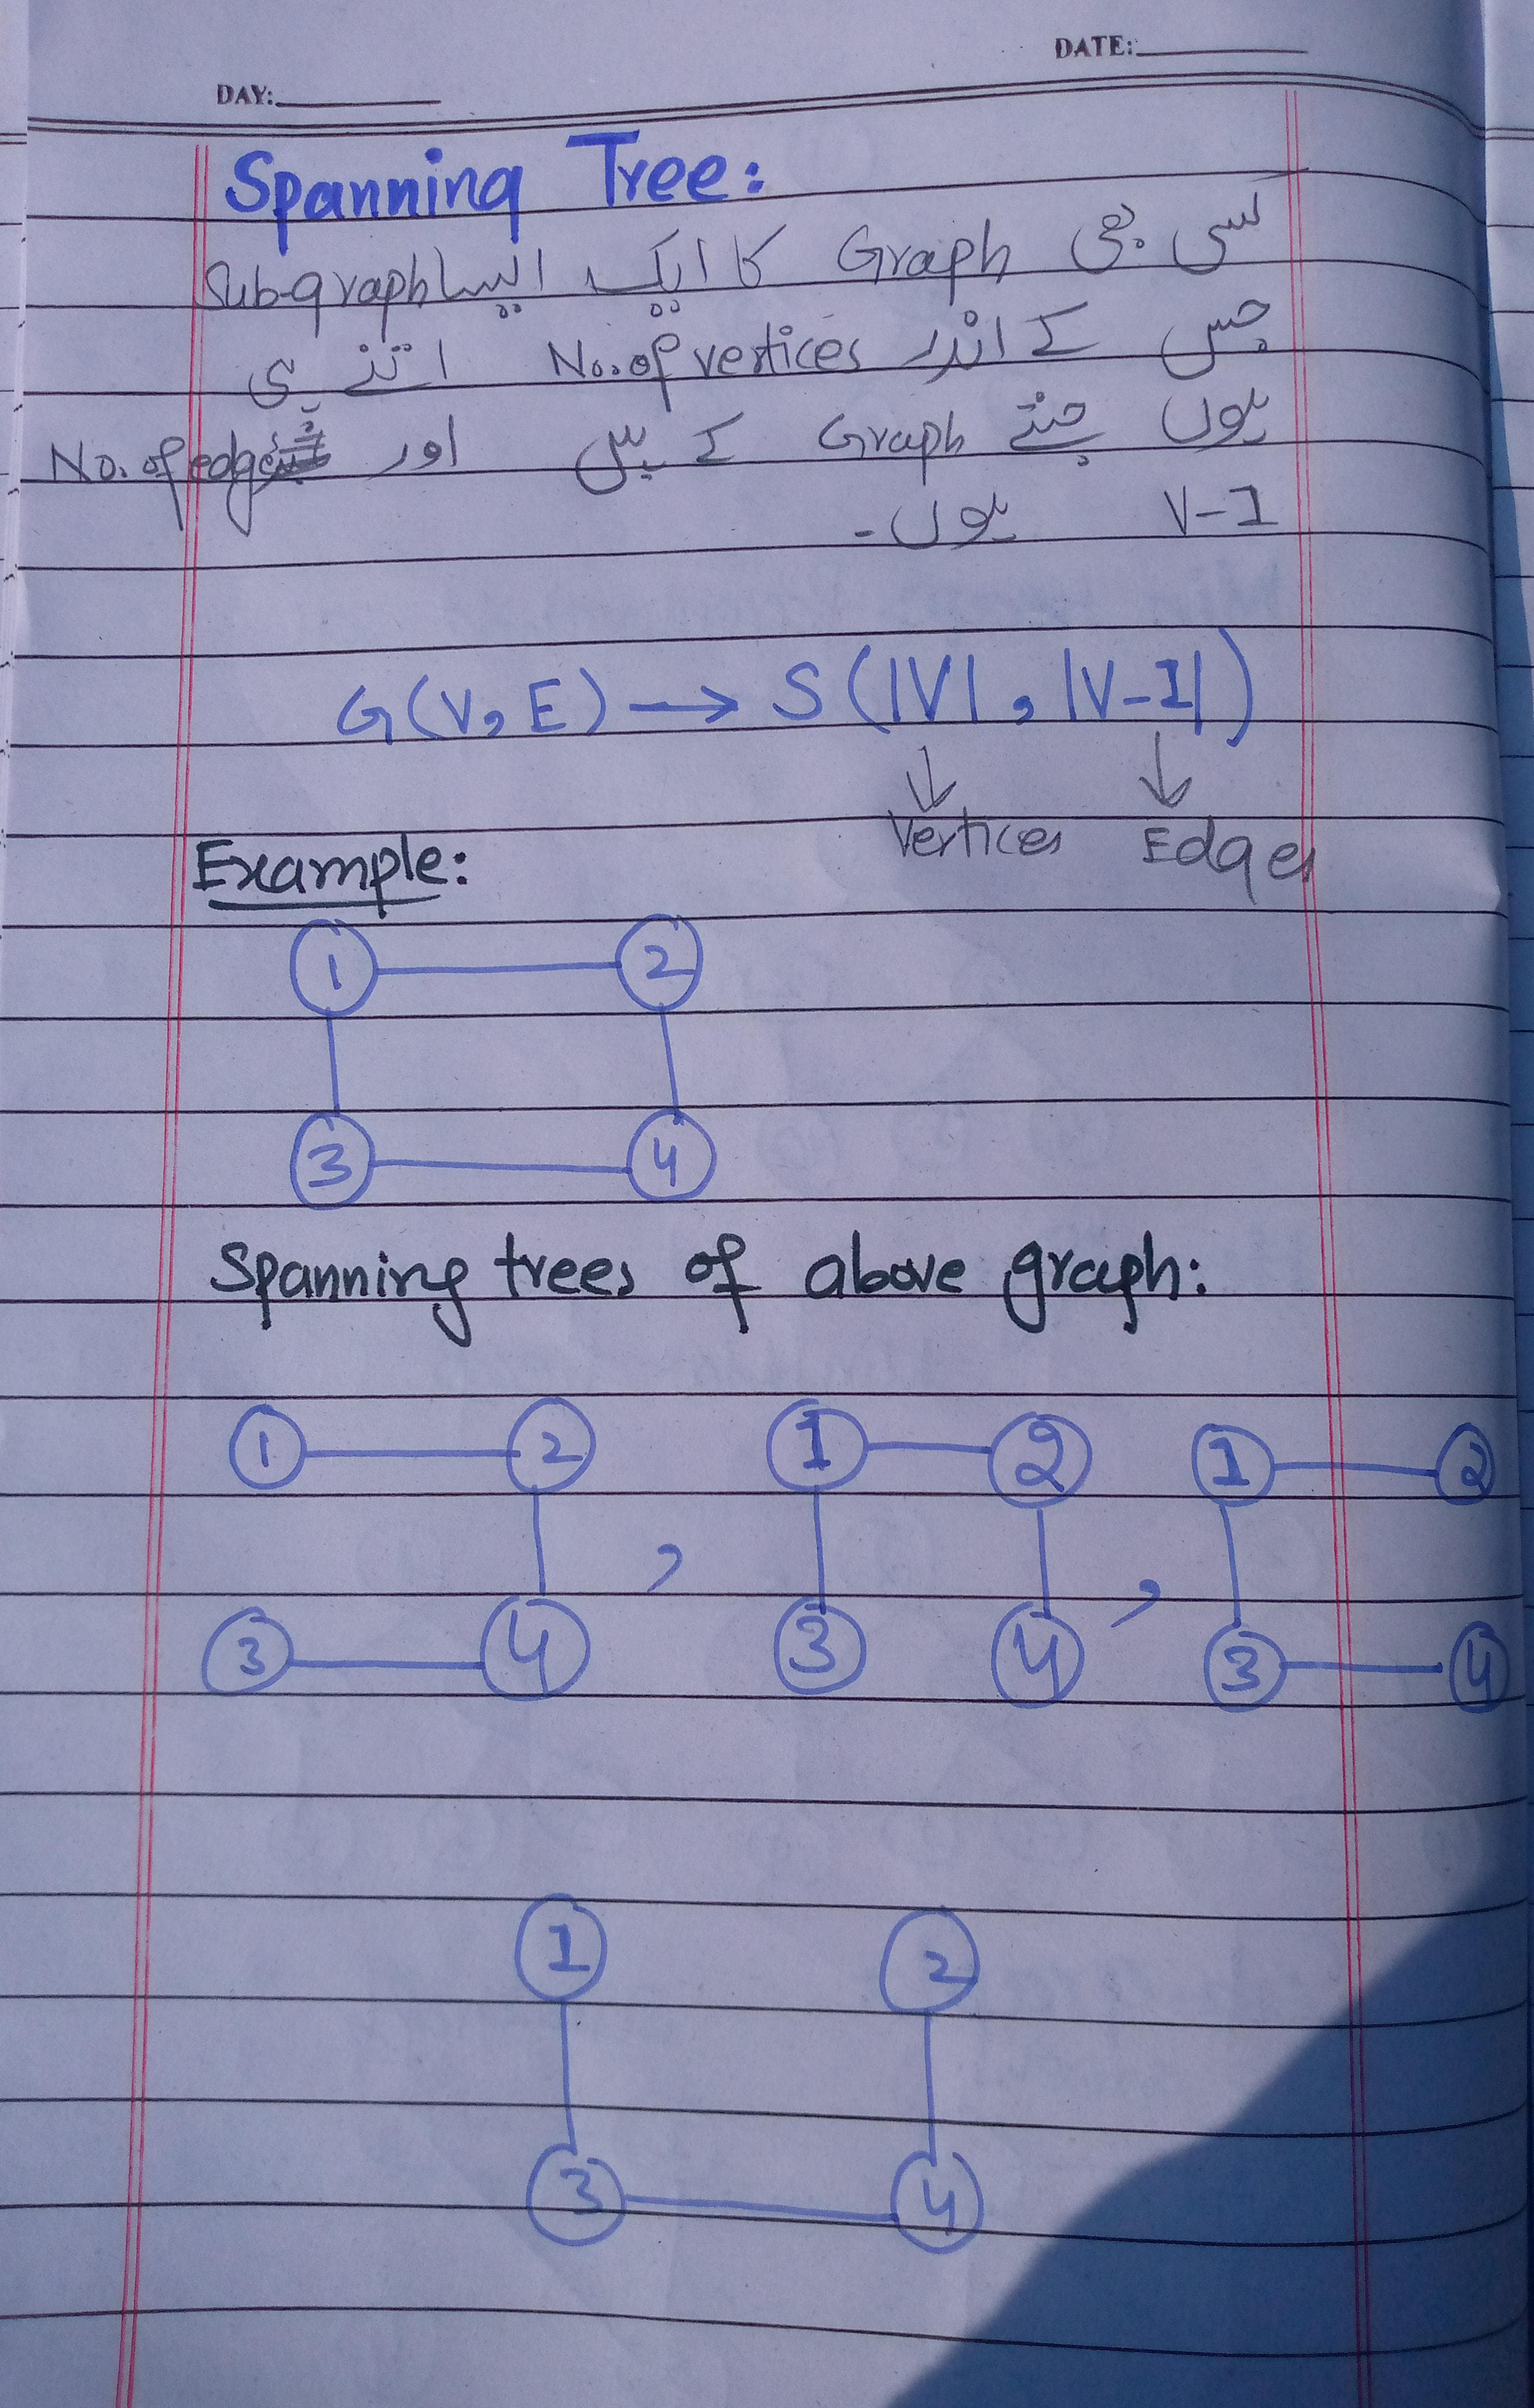 DATE:
DAY:
Spanning Tree:
کسی بھی Graph کا ایک ایسا Subgraph
جس کے اندر No. of vertices اتنے ہی
ہوں جتنے Graph کے ہیں اور No. of edges
V-1 ہوں۔
G(V, E) → S(|V|, |V-1|)
Vertices Edges
Example:
1 2
3 4
Spanning trees of above graph:
1 2 1 2 1 2
, ,
3 4 3 4 3 4
1 2
3 4